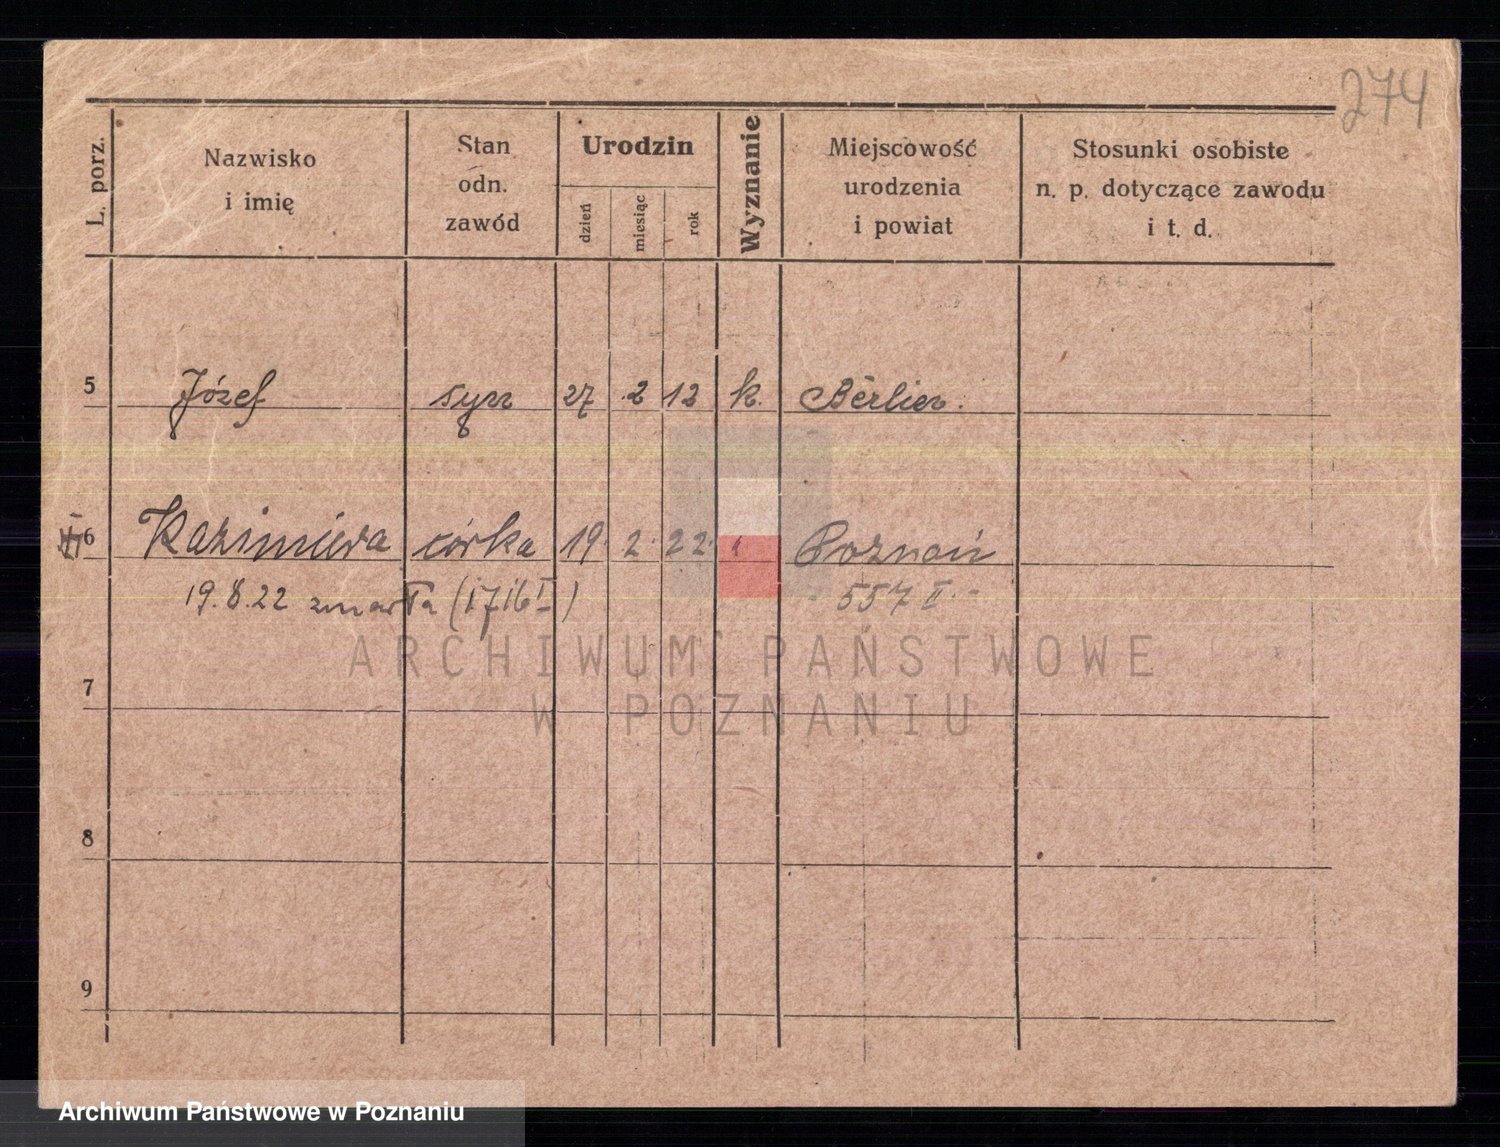 274
L. porz.
Nazwisko
i imię
Stan
odn.
zawód
Urodzin
dzień
miesiąc
rok
Wyznanie
Miejscowość
urodzenia
i powiat
Stosunki osobiste
n. p. dotyczące zawodu
i t. d.
5 Józef syn 27 2 12 k. Berlin.
6 Kazimiera córka 19. 2. 22. Poznań
19.8.22 zmarła (1716 I) 557 II.
ARCHIWUM PAŃSTWOWE
W POZNANIU
7
8
9
Archiwum Państwowe w Poznaniu